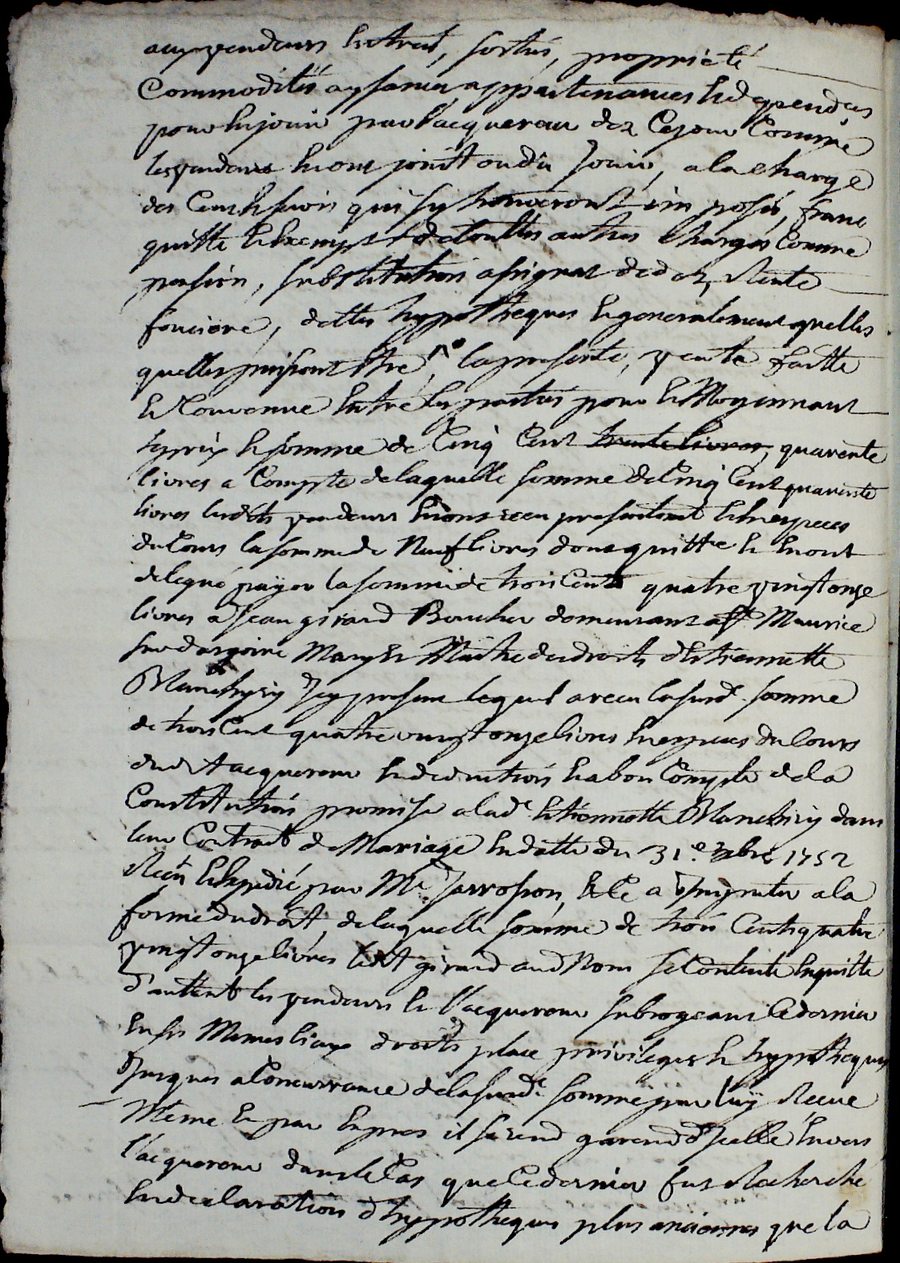 aux vendeurs entrées, sorties, proprieté
Commodités aysances appartenances et dependces
pour en jouir par l'acquereur dez Cejour Comme
les vendeurs en ont jouit ou dû Jouir, a la charge
des Cens et servis qui s'y trouveront imposés, franc
quitte et exempt de touttes autres charges Comme
pension, substitution assignat de dot, Rente
fonciere, dettes hypotheques et generalement quelles
quelles puissent être, la presente vente faitte
et Convenue entre les parties pour et Moyennant
le prix et somme de Cinq Cent trente livres, quarente
livres a Compte de laquelle somme de Cinq Cent quarente
livres lesdts vendeurs en ont receu presentement en especes
du Cours la somme de Neuf livres dont quitte et en ont
delegué payer la somme de trois Cent quatre vingt onze
livres a Jean girard Boucher demeurant a St Maurice
sur dargoire Mary et Maitre des droits d'Etiennette
Blanchery Icy present lequel a receu la susd. somme
de trois Cent quatre vingt onze livres en especes du Cours
dudt acquereur en deduction et a bon Compte de la
Constitution promise a lad. Etiennette Blanchery dans
leur Contrat de Mariage en datte du 31e. xbre 1752
Receu et expedié par Me. Jarrosson, et Ce a Insinuer a la
forme du droit, de laquelle somme de trois Cent quatre
vingt onze livres ledt girard aud. Nom se Contente en quitte
d'autent les vendeurs et l'acquereur subrogeant Ce dernier
en ses Mêmes lieux droits place privileges et hypotheques
Jusques a Concurrance de la susd. somme par luy Receue
Même et par exprès il se rend garend d'Icelle envers
l'acquereur dans le Cas que Ce dernier fut Recherché
en declaration d'hypotheques plus anciennes que la